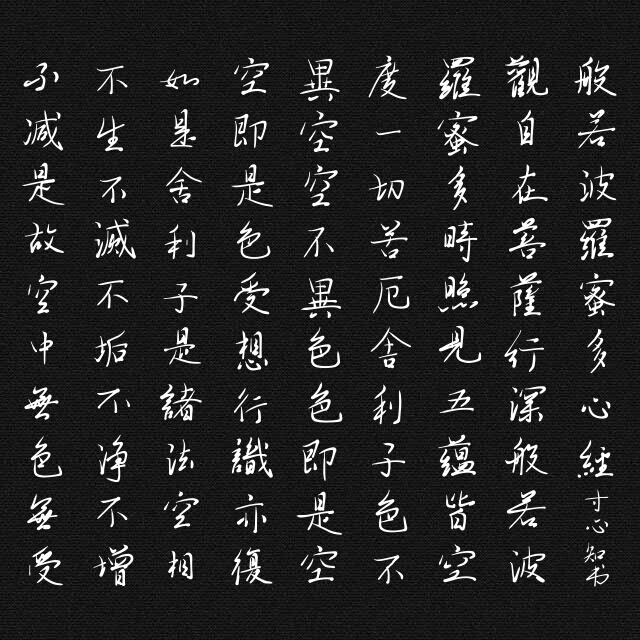 般若波羅蜜多心經寸心知书
觀自在菩薩行深般若波
羅蜜多時照見五蘊皆空
度一切苦厄舍利子色不
異空空不異色色即是空
空即是色受想行識亦復
如是舍利子是諸法空相
不生不滅不垢不净不增
不减是故空中無色無受